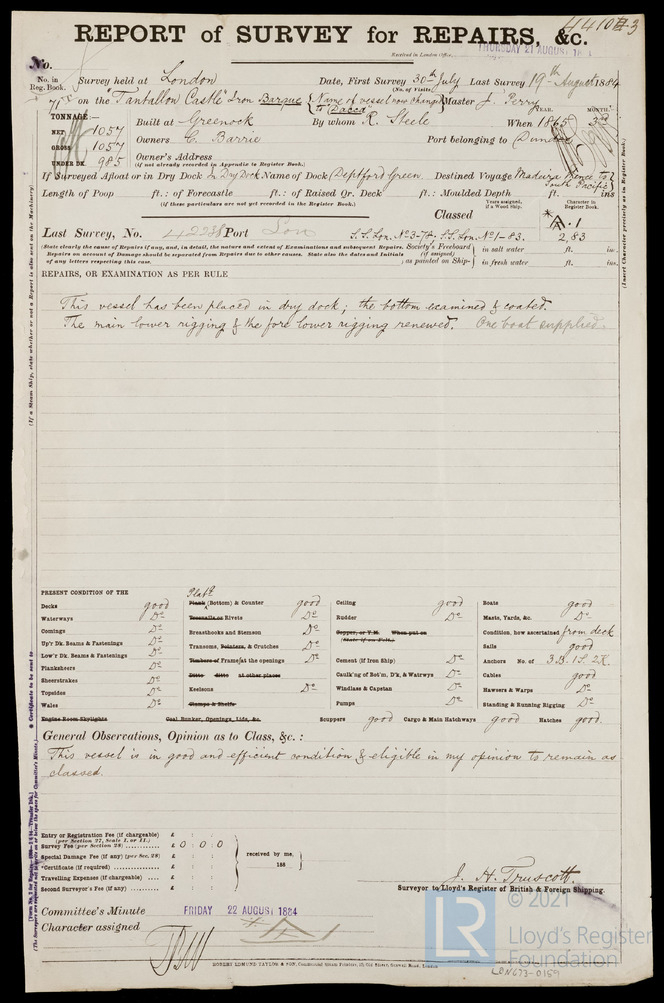 REPORT of SURVEY for REPAIRS, &c.
Received in London Office,
THURSDAY 21 AUGUST 188
No.
No. in Reg. Book.
Survey held at London
Date, First Survey 30th July Last Survey 19th August 1884
(No. of Visits)
on the "Tantallon Castle" Iron Barque (Name of vessel now changed to "Dacca") Master J. Perry
TONNAGE:—
NET 1057
GROSS 1057
UNDER DK. 985
Built at Greenock By whom R. Steele When 1865
YEAR. MONTH.
Owners C. Barrie Port belonging to Dundee
Owner's Address
(if not already recorded in Appendix to Register Book.)
If Surveyed Afloat or in Dry Dock In Dry Dock Name of Dock Deptford Green Destined Voyage Madeira thence to South Pacific
Length of Poop ft.: of Forecastle ft.: of Raised Qr. Deck ft.: Moulded Depth ft. ins
(if these particulars are not yet recorded in the Register Book.)
Years assigned, if a Wood Ship.
Character in Register Book.
Classed A.1
2,83
Last Survey, No. 42238 Port Lon
S.S. Lon. No 3-78, S.S. Lon. No 1-83.
(State clearly the cause of Repairs if any, and, in detail, the nature and extent of Examinations and subsequent Repairs.
Repairs on account of Damage should be separated from Repairs due to other causes. State also the dates and Initials of any letters respecting this case.
Society's Freeboard (if assigned) as painted on Ship- in salt water ft. in.
in fresh water ft. in.
REPAIRS, OR EXAMINATION AS PER RULE
This vessel has been placed in dry dock; the bottom examined & coated.
The main lower rigging & the fore lower rigging renewed. One boat supplied.
PRESENT CONDITION OF THE
Decks good
Waterways Do
Comings Do
Up'r Dk. Beams & Fastenings Do
Low'r Dk. Beams & Fastenings Do
Planksheers Do
Sheerstrakes Do
Topsides Do
Wales Do
Engine Room Skylights
Plank (Bottom) & Counter good
Treenails or Rivets Do
Breasthooks and Stemson Do
Transoms, Pointers, & Crutches Do
Timbers or Frames at the openings Do
Ditto ditto at other places
Keelsons Do
Clamps & Shelfs
Coal Bunker, Openings, Lids, &c.
Ceiling good
Rudder Do
Copper, or Y.M. When put on
(State if on Felt.)
Cement (if Iron Ship) Do
Caulk'ng of Bot'm, D'k, & Watrwys Do
Windlass & Capstan Do
Pumps Do
Scuppers good Cargo & Main Hatchways good Hatches good.
Boats good
Masts, Yards, &c. Do
Condition, how ascertained from deck
Sails good
Anchors No. of 3.B. 1S. 2K.
Cables good
Hawsers & Warps Do
Standing & Running Rigging Do
General Observations, Opinion as to Class, &c. :
This vessel is in good and efficient condition & eligible in my opinion to remain as
classed.
Entry or Registration Fee (if chargeable) £ : :
(per Section 27, Scale I. or II.)
Survey Fee (per Section 28) £ 0 : 0 : 0
Special Damage Fee (if any) (per Sec. 28) £ : :
*Certificate (if required) £ : :
Travelling Expenses (if chargeable) £ : :
Second Surveyor's Fee (if any) £ : :
received by me,
188
J. H. Truscott
Surveyor to Lloyd's Register of British & Foreign Shipping.
Committee's Minute FRIDAY 22 AUGUST 1884
Character assigned
© 2021
LR
Lloyd's Register
Foundation
LON673-0159